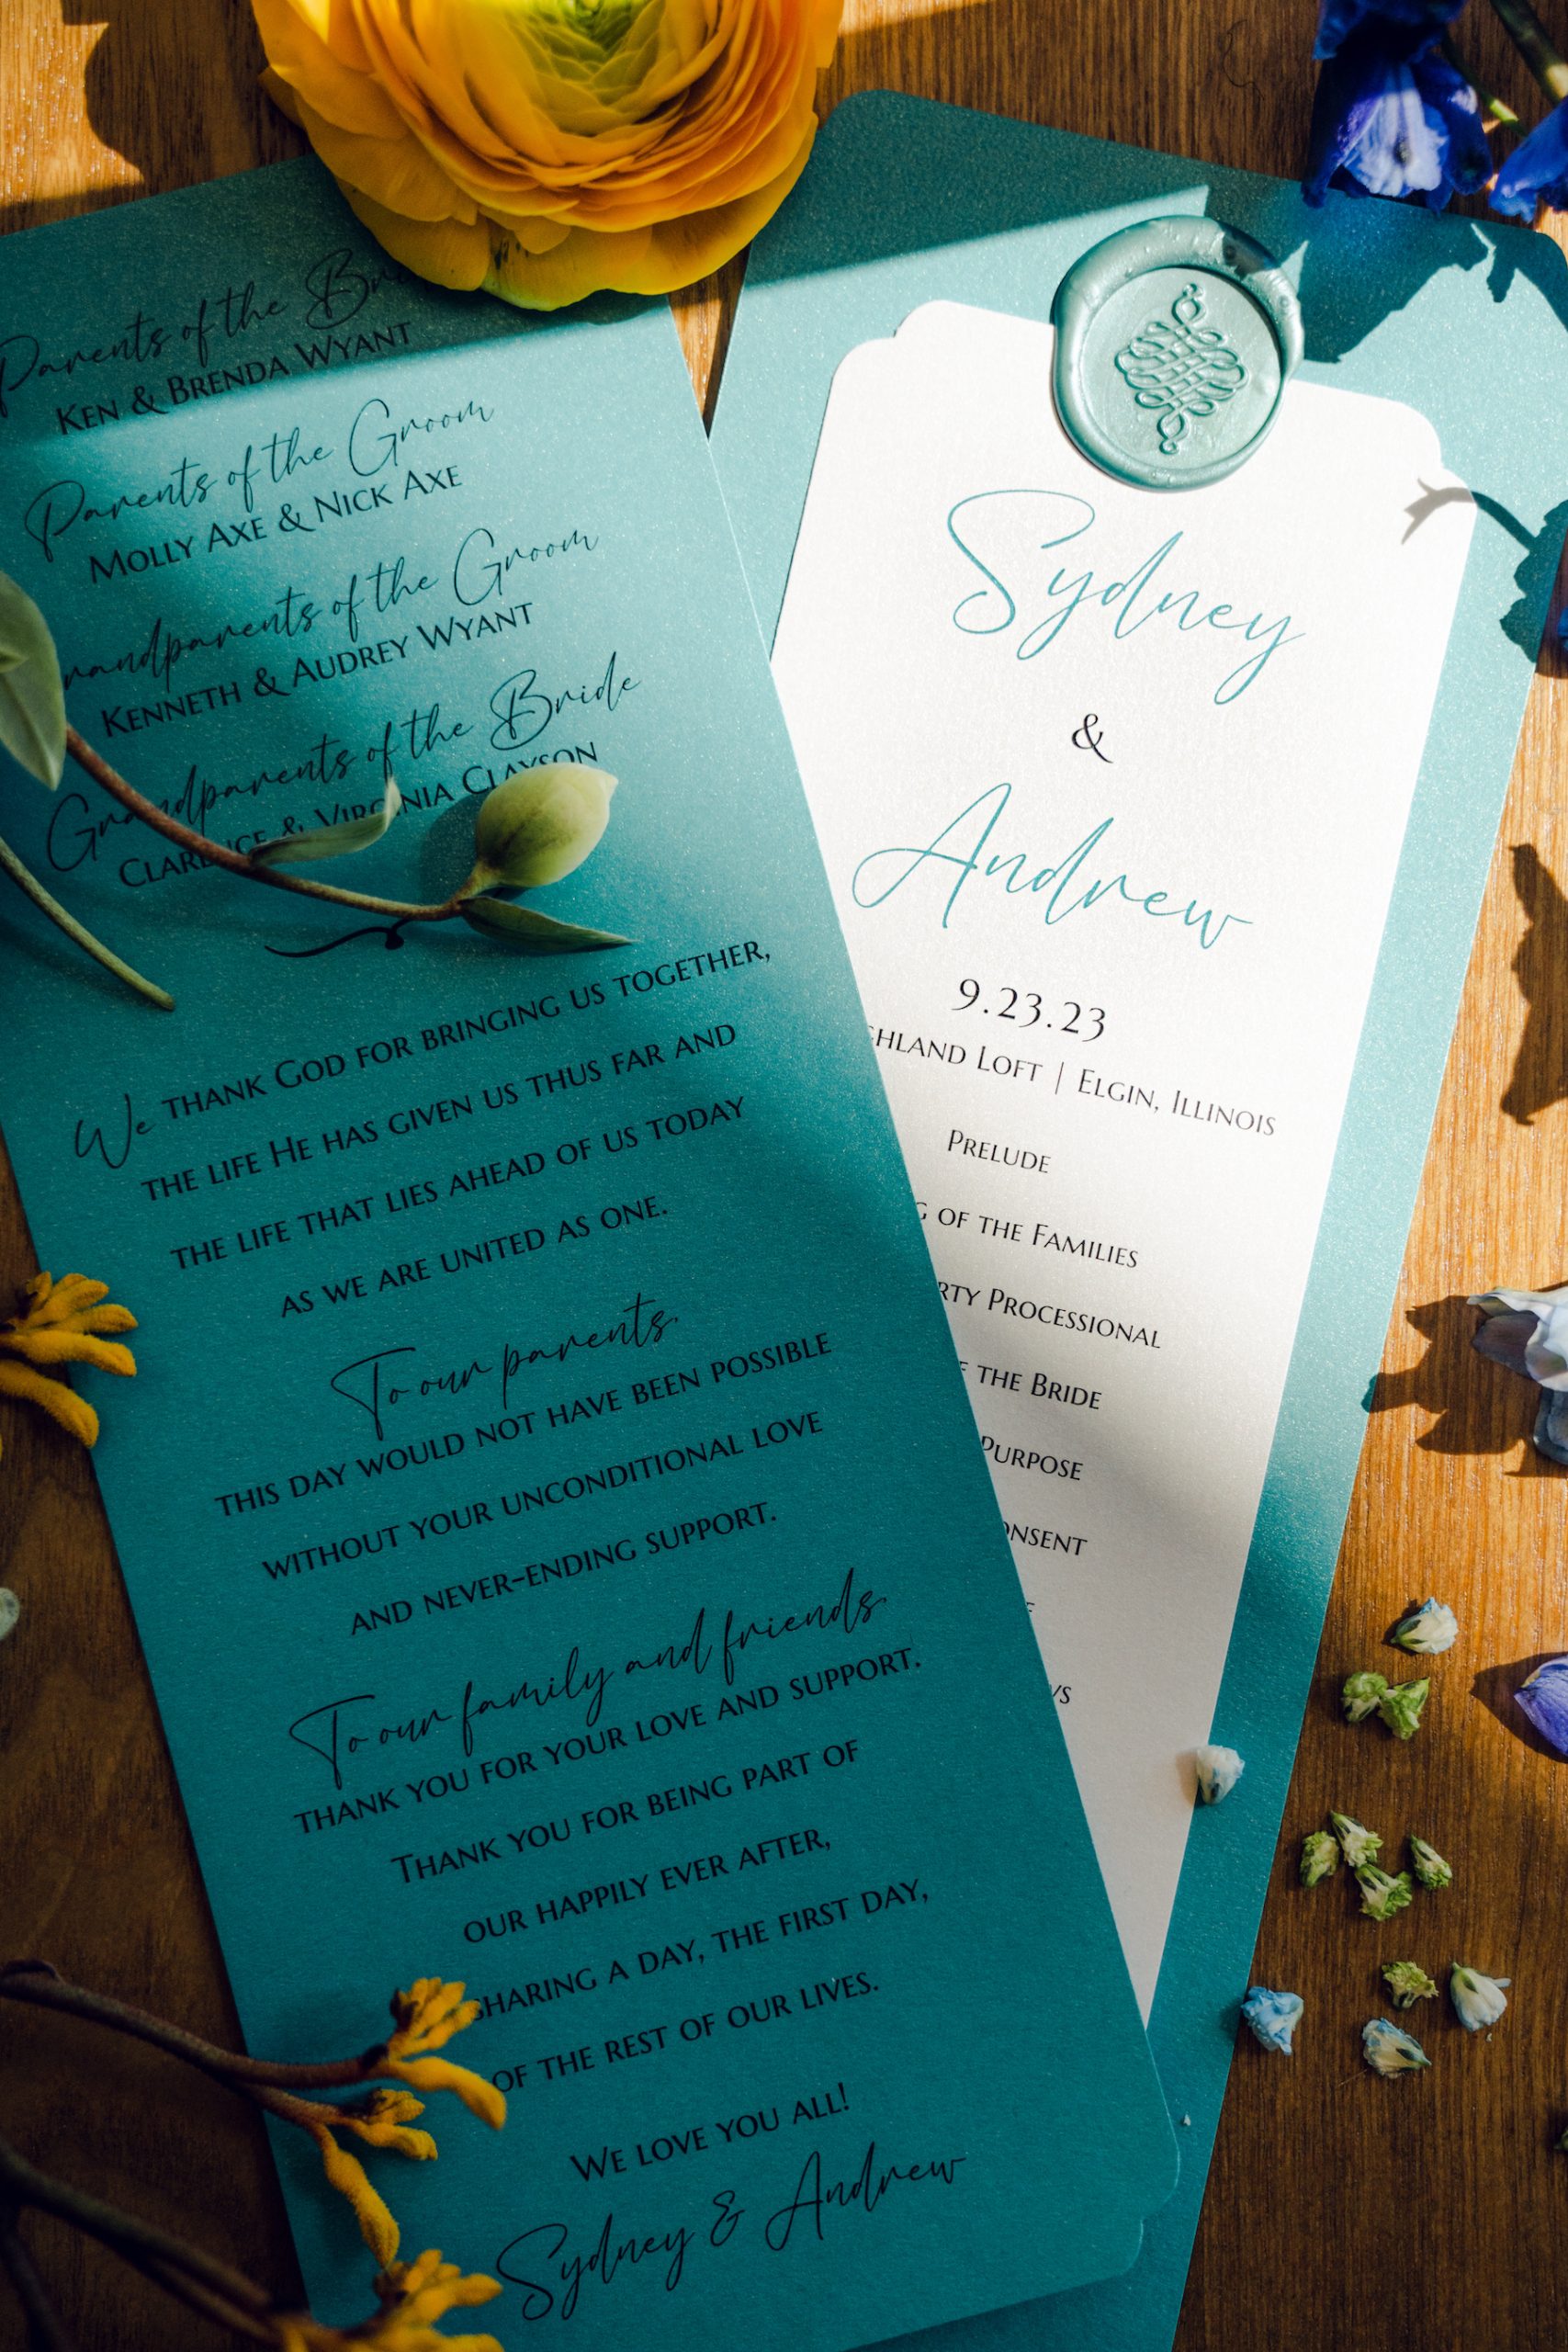 Parents of the
Ken & Brenda Wyant
Parents of the Groom
Molly Axe & Nick Axe
of the Groom
Kenneth & Audrey Wyant
Grandparents of the Bride
& Virginia Clayson
We thank God for bringing us together,
the life He has given us thus far and
the life that lies ahead of us today
as we are united as one.
To our parents,
this day would not have been possible
without your unconditional love
and never-ending support.
To our family and friends,
thank you for your love and support.
Thank you for being part of
our happily ever after,
sharing a day, the first day,
of the rest of our lives.
We love you all!
Sydney & Andrew
Sydney
&
Andrew
9.23.23
Loft | Elgin, Illinois
Prelude
of the Families
Processional
the Bride
Purpose